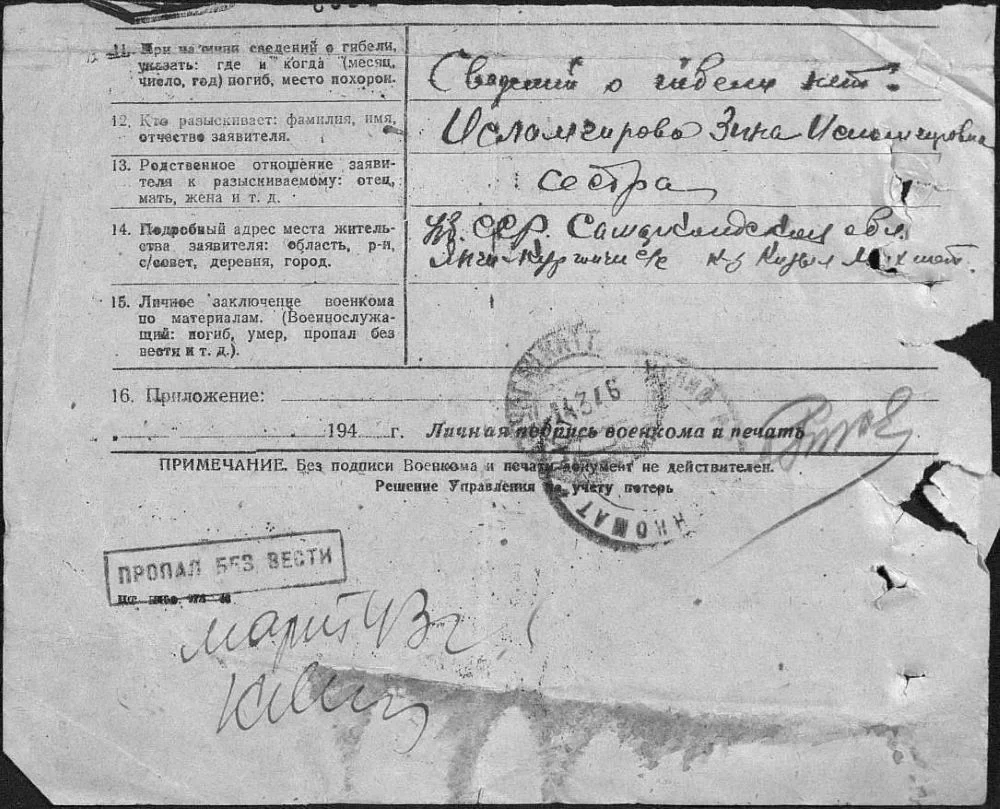 11. При наличии сведений о гибели,
указать: где и когда (месяц,
число, год) погиб, место похорон.
Сведений о гибели нет.
12. Кто разыскивает: фамилия, имя,
отчество заявителя.
Исламгирова Зина Исламгировна
13. Родственное отношение заяви-
теля к разыскиваемому: отец,
мать, жена и т. д.
сестра
14. Подробный адрес места житель-
ства заявителя: область, р-н,
с/совет, деревня, город.
Уз. ССР. Самаркандская обл.
15. Личное заключение военкома
по материалам. (Военнослужа-
щий: погиб, умер, пропал без
вести и т. д.).
16. Приложение:
194 г. Личная подпись военкома и печать
ПРИМЕЧАНИЕ. Без подписи Военкома и печати документ не действителен.
Решение Управления по учету потерь
ПРОПАЛ БЕЗ ВЕСТИ
март 43 г